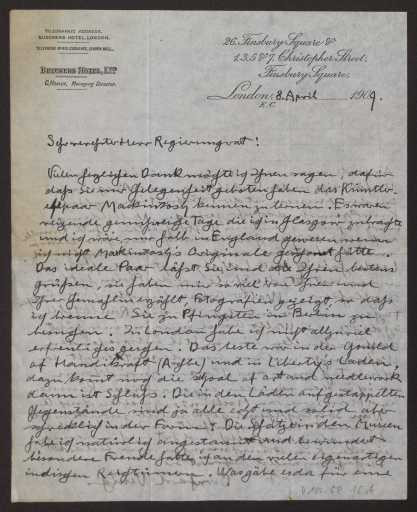 TELEGRAPHIC ADDRESS,
BUECKERS HOTEL, LONDON.
BUECKERS HOTEL, LTD
Managing Director.
26, Finsbury Square &
1.3.5 & 7, Christopher Street,
Finsbury Square,
London, 8. April 1909.
E.C.
Sehr verehrter Herr Regierungsrat!
Vielen herzlichen Dank möchte ich Ihnen sagen, dafür
daß Sie mir Gelegenheit geboten haben das Künstler-
ehepaar Mackintosh kennen zu lernen. Es waren
reizende genußreiche Tage die ich in Glasgow zubrachte
und ich wäre nur halb in England gewesen wenn
ich nicht Mackintosh's Originale gesehen hätte.
Das ideale Paar läßt Sie und die Ihren bestens
grüßen, sie haben mir so viel von Ihnen und
Ihrer Gemahlin erzählt, Fotografien gezeigt, so daß
ich brenne Sie zu Pfingsten in Berlin zu
besuchen. In London habe ich nicht allzuviel
erfreuliches gesehen. Das beste war in der Guild
of Handikraft und in Liberty's Laden,
dazu kommt noch die School of art and needlework
dann ist Schluß. Die in den Läden aufgestapelten
Gegenstände sind ja alle echt und solid aber
schrecklich in der Form! Die Schätze in den Museen
habe ich natürlich angestaunt und bewundert
besondere Freude hatte ich an den vielen eigenartigen
indischen Erzeugnissen. Was gäbe es da für eine